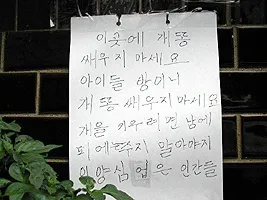 이곳에 개똥
싸우지 마세요
아이들 방이니
개똥 싸우지 마세요
개을 키우려면 남에
피해주지 말아야지
이 양심 업은 인간들